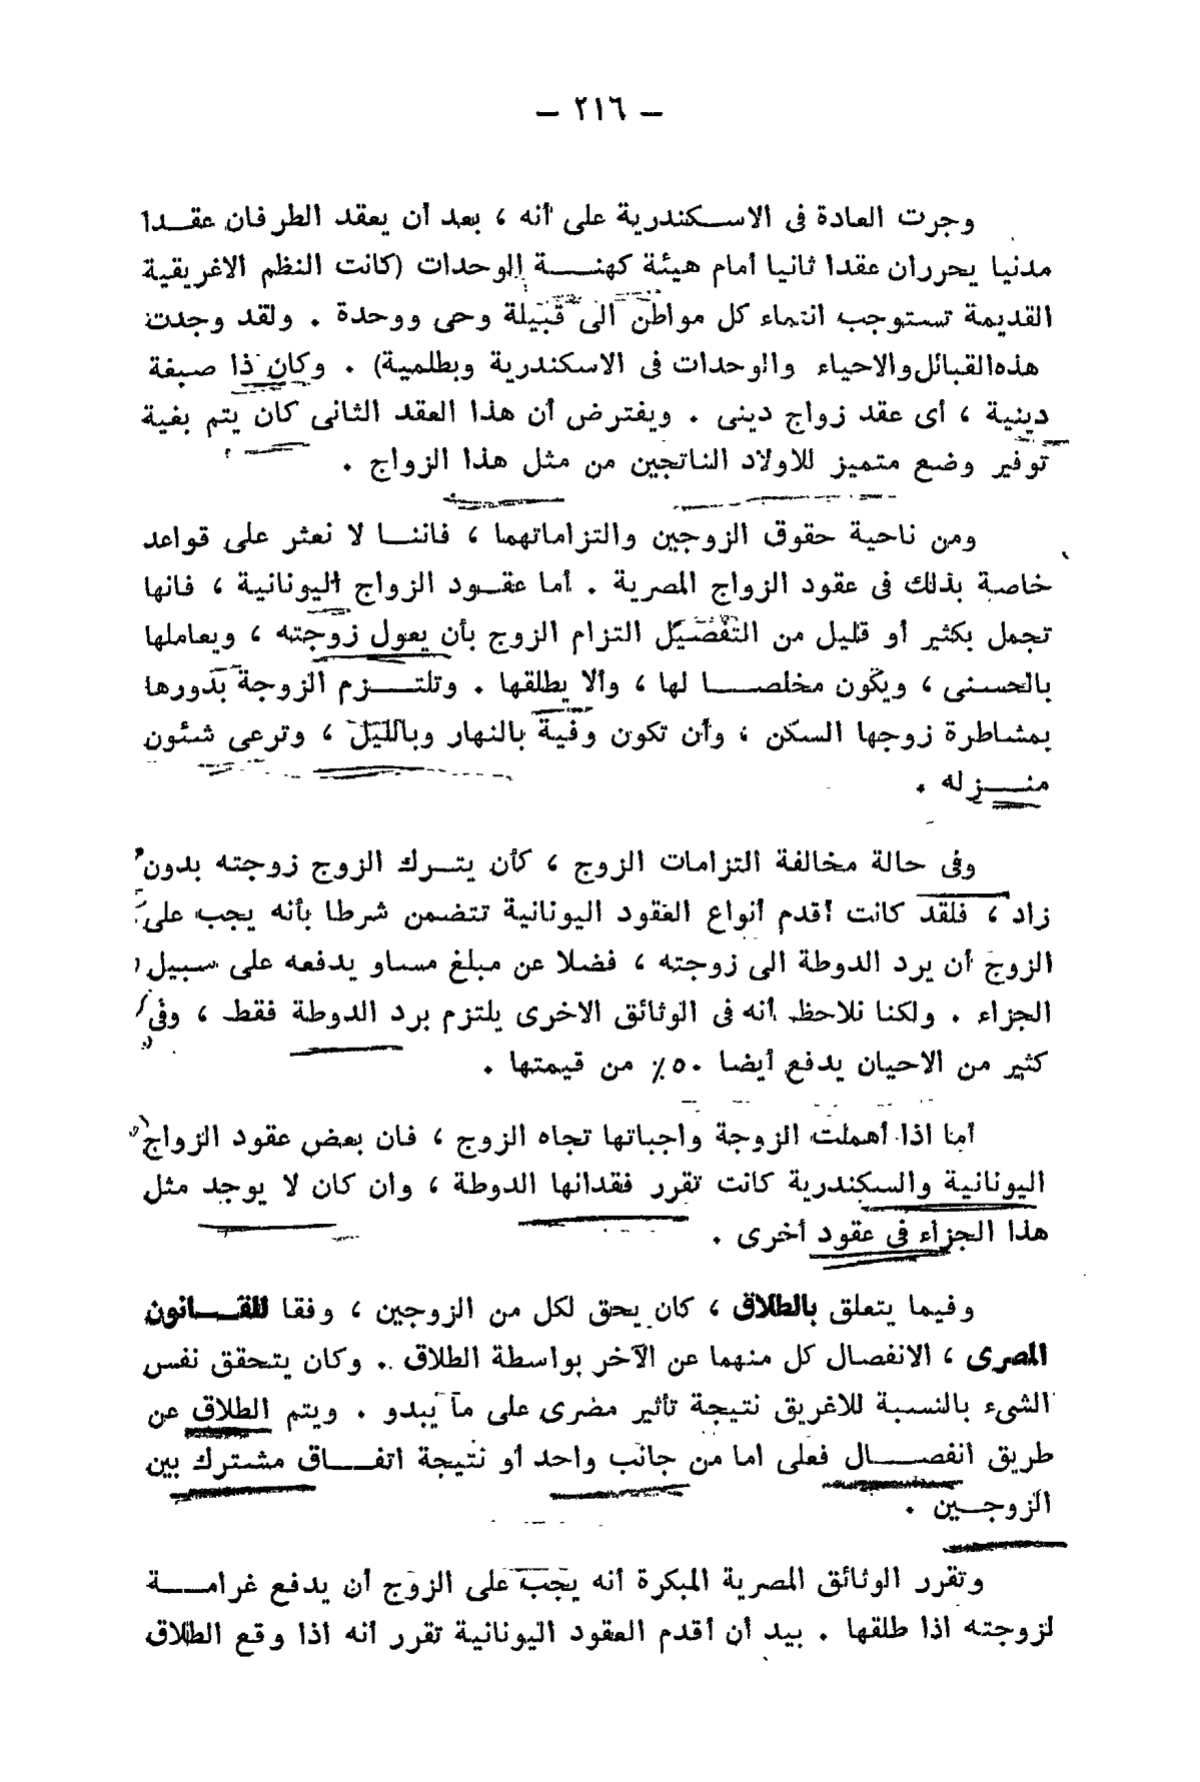 — ٢١٦ —
وجرت العادة فى الاسكندرية على أنه ، بعد أن يعقد الطرفان عقدا
مدنيا يحرران عقدا ثانيا أمام هيئة كهنة الوحدات (كانت النظم الاغريقية
القديمة تستوجب انتماء كل مواطن الى قبيلة وحى ووحدة . ولقد وجدت
هذه القبائل والاحياء والوحدات فى الاسكندرية وبطلمية) . وكان ذا صبغة
دينية ، أى عقد زواج دينى . ويفترض أن هذا العقد الثانى كان يتم بغية
توفير وضع متميز للاولاد الناتجين من مثل هذا الزواج .
ومن ناحية حقوق الزوجين والتزاماتهما ، فاننا لا نعثر على قواعد
خاصة بذلك فى عقود الزواج المصرية . أما عقود الزواج اليونانية ، فانها
تجمل بكثير أو قليل من التفصيل التزام الزوج بأن يعول زوجته ، ويعاملها
بالحسنى ، ويكون مخلصا لها ، وألا يطلقها . وتلتزم الزوجة بدورها
بمشاطرة زوجها السكن ، وأن تكون وفية بالنهار وبالليل ، وترعى شئون
منزله .
وفى حالة مخالفة التزامات الزوج ، كأن يترك الزوج زوجته بدون
زاد ، فلقد كانت أقدم أنواع العقود اليونانية تتضمن شرطا بأنه يجب على
الزوج أن يرد الدوطة الى زوجته ، فضلا عن مبلغ مساو يدفعه على سبيل
الجزاء . ولكنا نلاحظ أنه فى الوثائق الاخرى يلتزم برد الدوطة فقط ، وفى
كثير من الاحيان يدفع أيضا ٥٠٪ من قيمتها .
أما اذا أهملت الزوجة واجباتها تجاه الزوج ، فان بعض عقود الزواج
اليونانية والسكندرية كانت تقرر فقدانها الدوطة ، وان كان لا يوجد مثل
هذا الجزاء فى عقود أخرى .
وفيما يتعلق بالطلاق ، كان يحق لكل من الزوجين ، وفقا للقانون
المصرى ، الانفصال كل منهما عن الآخر بواسطة الطلاق . وكان يتحقق نفس
الشىء بالنسبة للاغريق نتيجة تأثير مصرى على ما يبدو . ويتم الطلاق عن
طريق انفصال فعلى اما من جانب واحد أو نتيجة اتفاق مشترك بين
الزوجين .
وتقرر الوثائق المصرية المبكرة أنه يجب على الزوج أن يدفع غرامة
لزوجته اذا طلقها . بيد أن أقدم العقود اليونانية تقرر أنه اذا وقع الطلاق